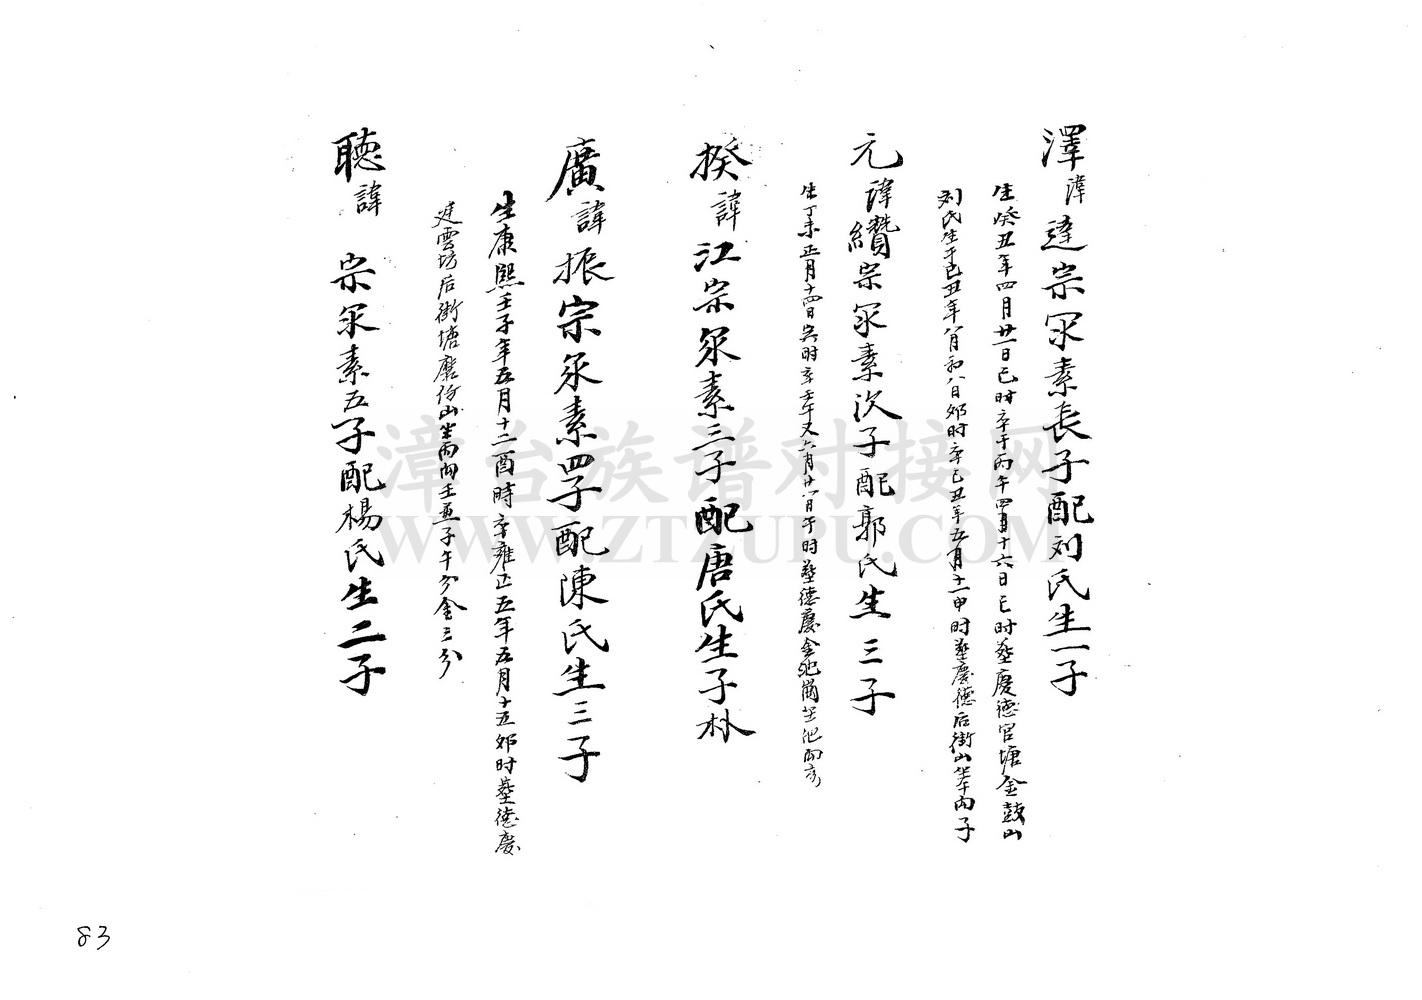 澤諱達宗冞素長子配刘氏生一子
生癸丑年四月廿一日巳时卒于丙午四月十六日巳时塟慶德官塘金鼓山
刘氏生于己丑年八月初八日夘时卒己丑年五月十一申时塟慶德后街山坐午向子
元諱纘宗冞素次子配郭氏生三子
生丁未正月十四日寅时卒壬午又六月廿一日午时塟德慶金池崗坐巳向亥
揆諱江宗冞素三子配唐氏生子朴
廣諱振宗冞素四子配陳氏生三子
生康熙壬子年五月十二酉時卒雍正五年五月十五夘时塟德慶
建雲坊后街塘磨份山坐丙向壬兼子午分金三分
聴諱 宗冞素五子配楊氏生二子
漳台族谱对接网
WWW.ZTZUPU.COM
83